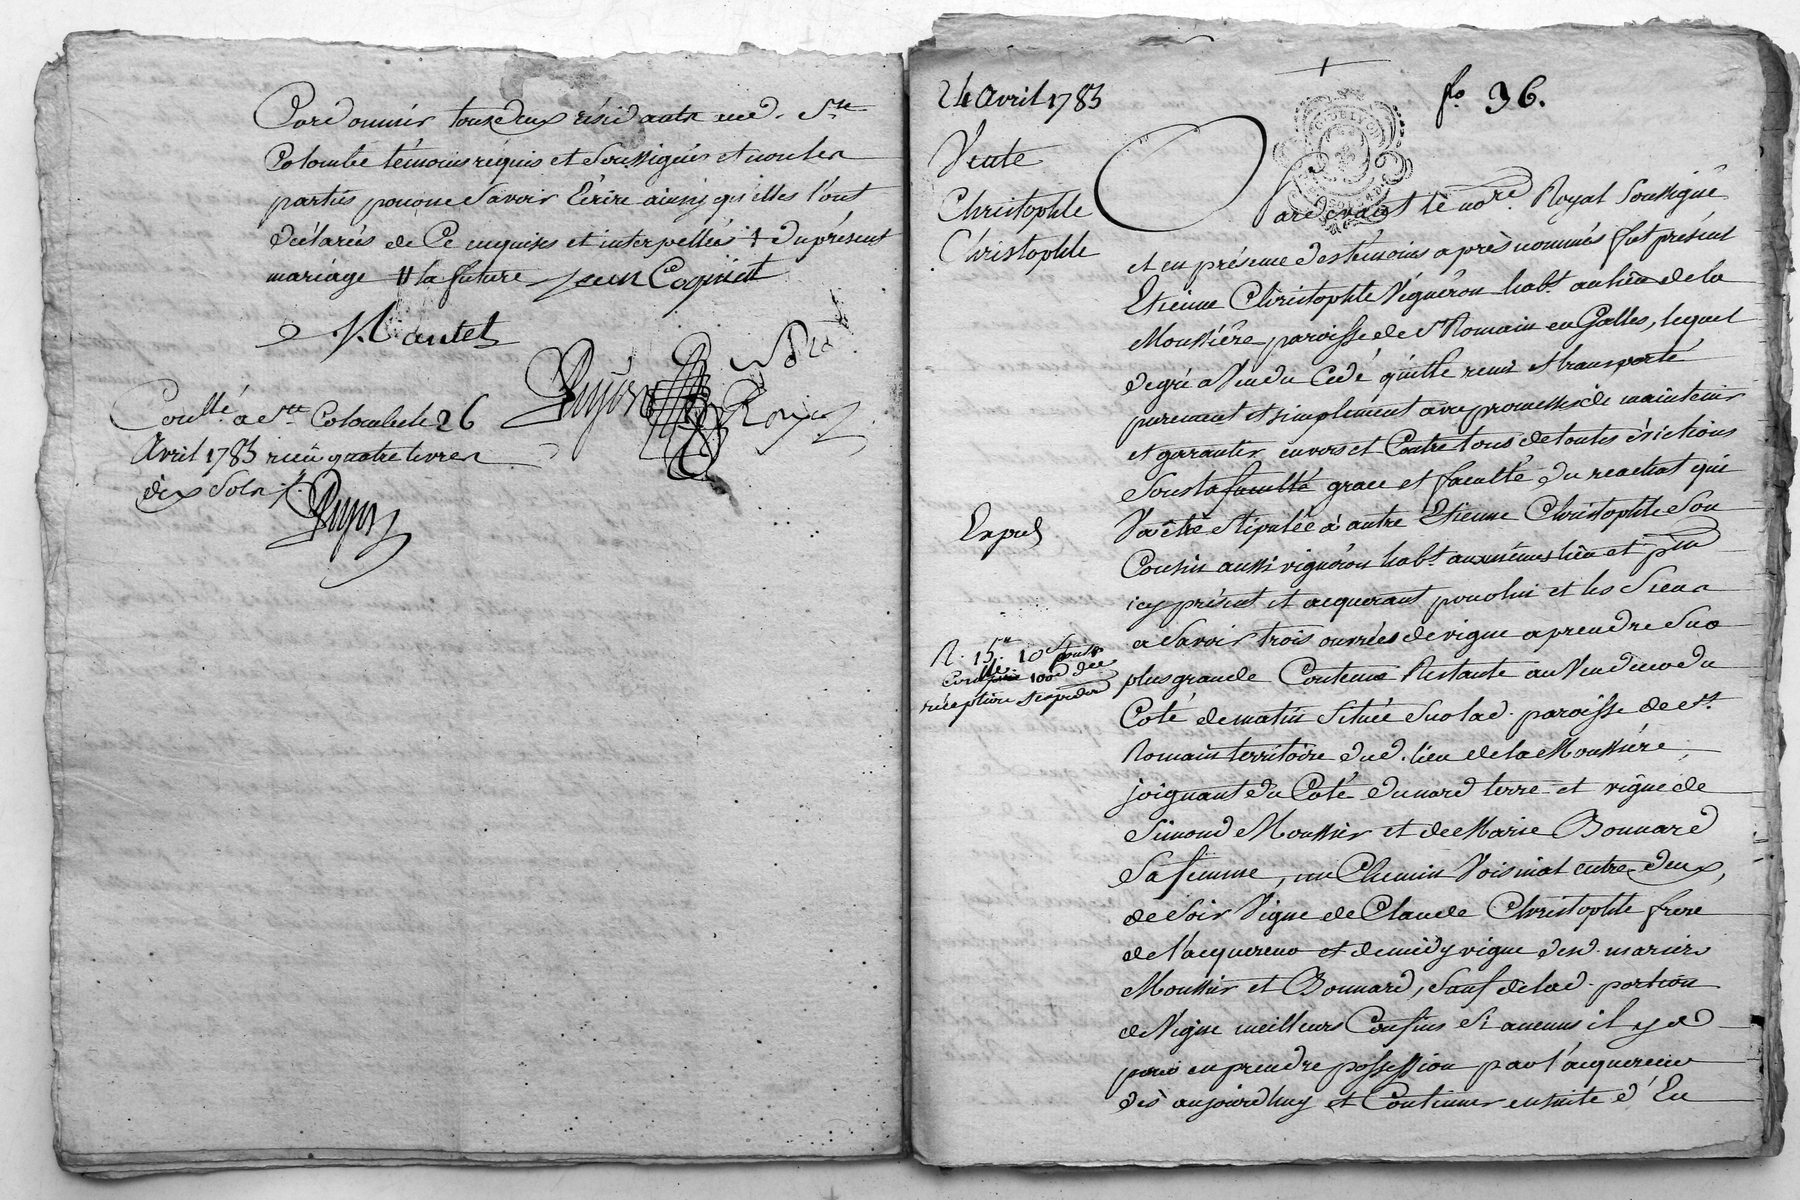 Cordonnier tous deux résidants aud. Ste
Colombe témoins requis et soussignés et non les
parties pour ne savoir Ecrire ainsy qu'illes l'ont
déclarés de Ce enquises et interpellées ‡ du présent
mariage # la future jean Coginet
Nantet
Puyos
Roux
Conllé. a Ste Colombe le 26
Avril 1783 reçu quatre livres
dix sols f.
Puyos
24 Avril 1783
Vente
Christophle
Christophle
Expéd
R. 15ll. 10s pour le
Compris 100e dee
réception Scapedon
fo 96.
G. DE LYON
Pardevant le nore. Royal Soussigné
et en présence des témoins après nommés fut présent
Etienne Christophle Vigneron habt. au lieu de la
Moussière paroisse de St Romain en Galles, lequel
de gré a Vendu Cedé quitté remis et transporté
purement et simplement avec promesse de maintenir
et garantir envers et Contre tous de toutes évictions
sous la faculté grace et faculté du reachat qui
Va être stipulée à autre Etienne Christophle son
Cousin aussi vigneron habt. aux mêmes lieu et psse
icy présent et acquerant pour lui et les siens
a savoir trois ouvrées de vigne a prendre sur
plus grande Contenue Restante au Vendeur du
Coté de matin située sur lad. paroisse de St.
Romain territoire dud. lieu de la Moussière,
joignant du Coté du nord terre et vigne de
Simond Moussier et de Marie Bonnard
sa femme, un Chemin Voisinal entre deux,
de soir Vigne de Claude Christophle frere
de l'acquereur et de midy vigne desd. mariés
Moussier et Bonnard, sauf de lad. portion
de Vigne meilleurs Confins si aucuns il y a
pour en prendre possession par l'acquereur
dès aujourd'huy et Continuer ensuite d'En